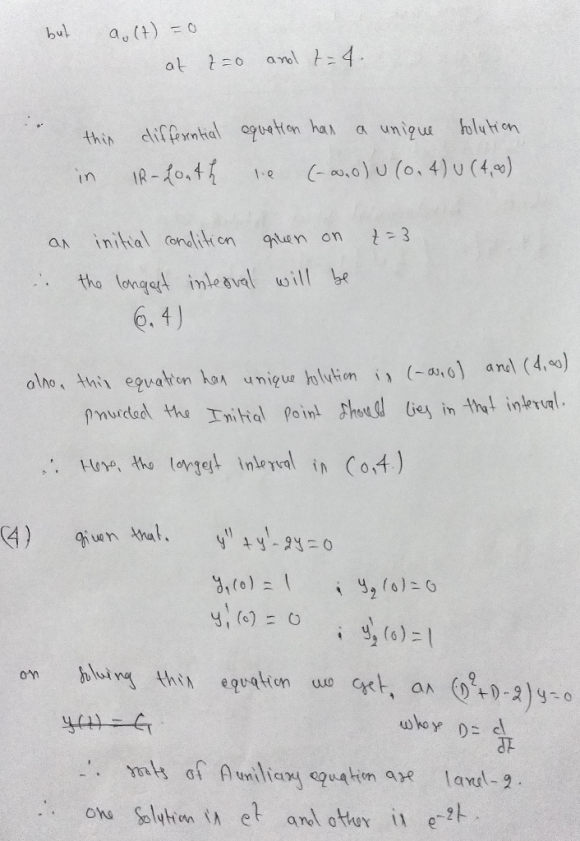 but a₀(t) = 0
at t=0 and t=4.
∴ this differential equation has a unique solution
in IR-{0,4} i.e (-∞,0) ∪ (0,4) ∪ (4,∞)
as initial condition given on t=3
∴ the longest interval will be
(0,4)
also, this equation has unique solution in (-∞,0) and (4,∞)
provided the Initial Point should lies in that interval.
∴ Here, the longest interval is (0,4)
(4) given that. y'' + y' - 2y = 0
y₁(0) = 1 ; y₂(0) = 0
y₁'(0) = 0 ; y₂'(0) = 1
on solving this equation we get, as (D²+D-2)y=0
y(t) = C₁ where D = d/dt
∴ roots of Auxiliary equation are 1 and -2.
∴ one Solution is eᵗ and other is e⁻²ᵗ.